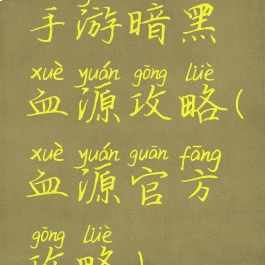 手游暗黑
xuè yuán gōng lüè
血源攻略(
xuè yuán guān fāng
血源官方
gōng lüè
攻略)